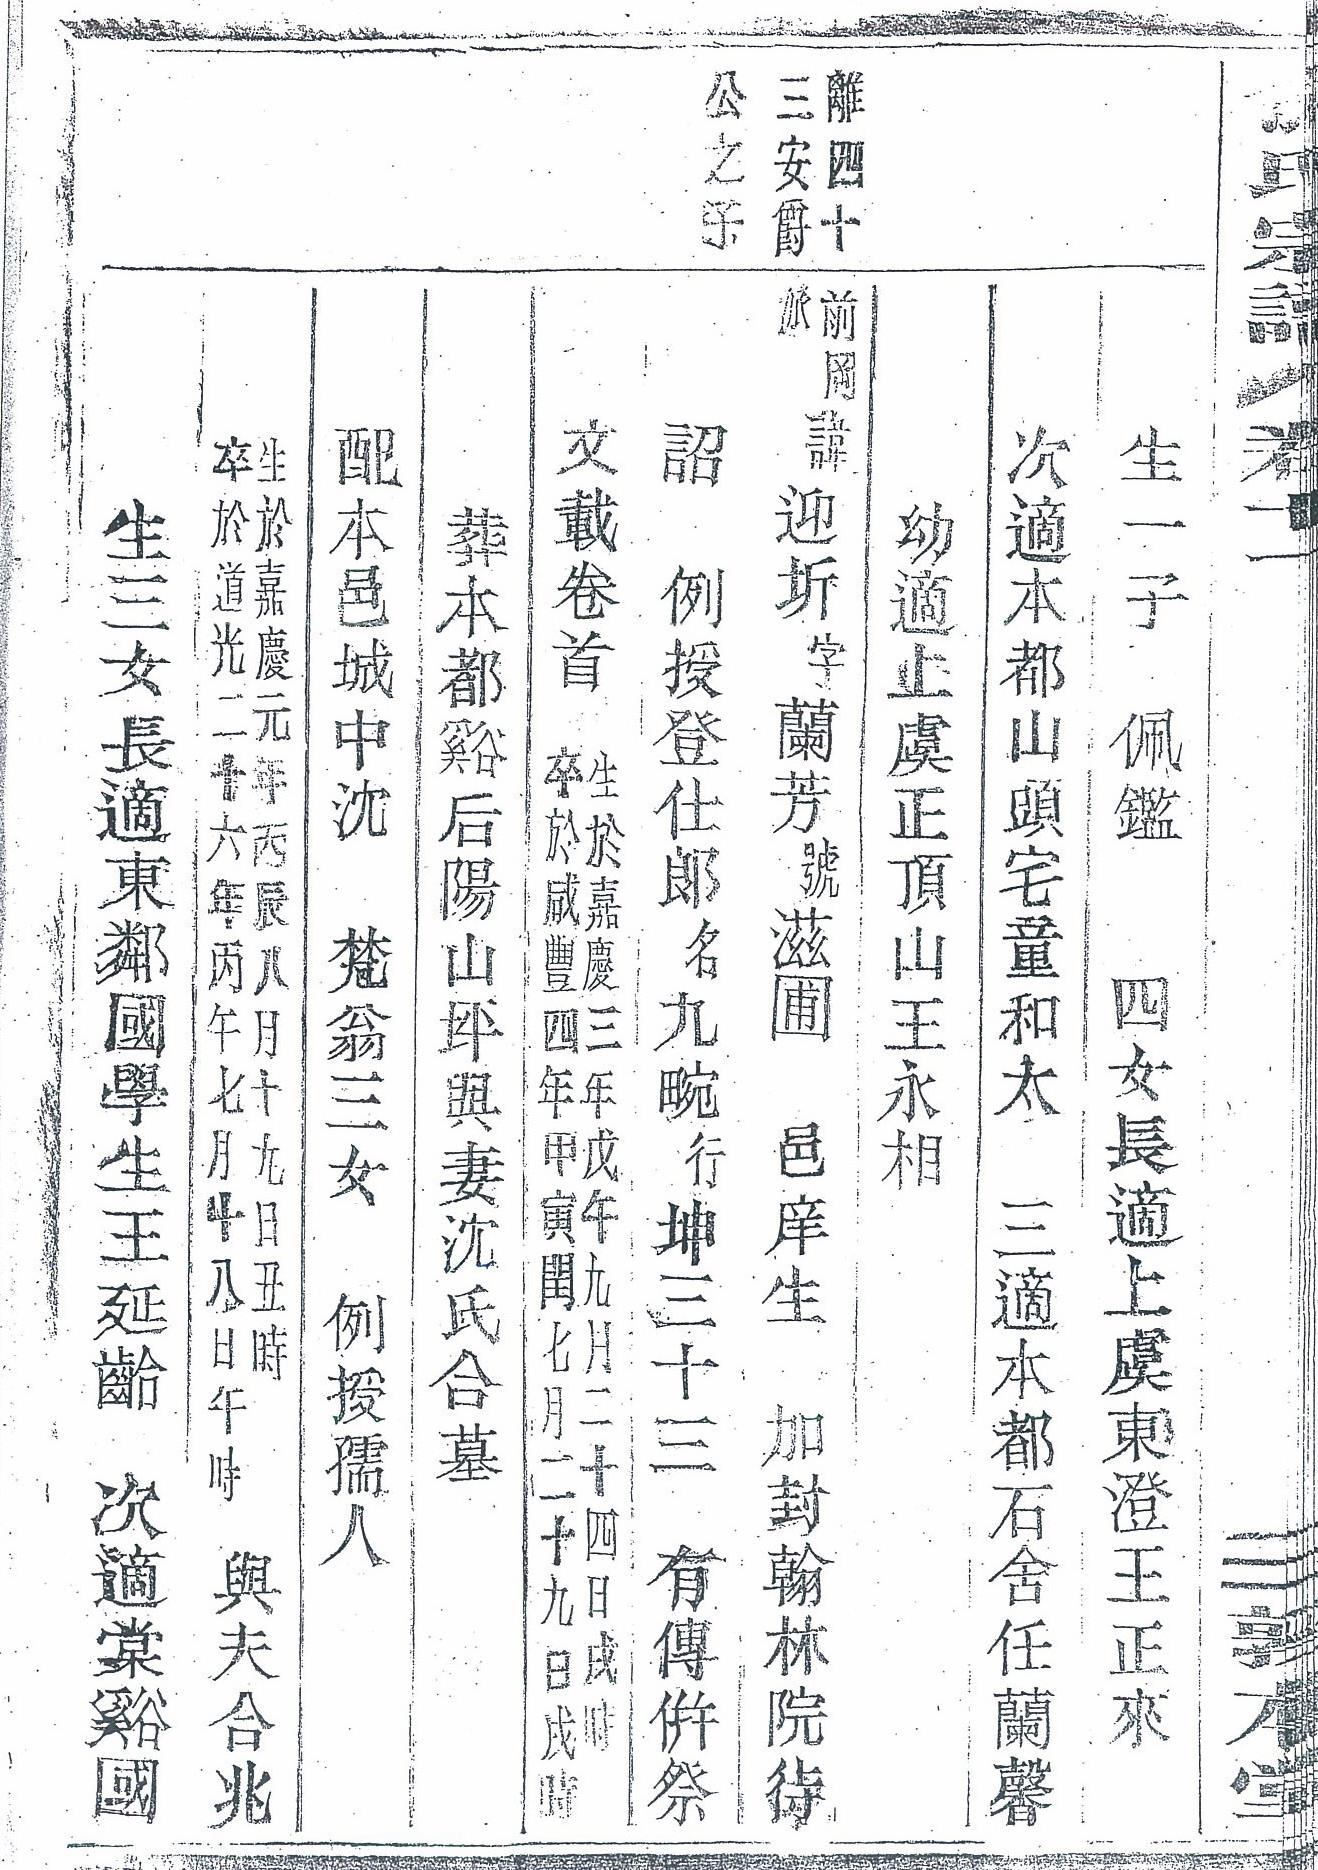 氏宗譜 卷二
三 敦本堂
生一子 佩鑑 四女長適上虞東澄王正來
次適本都山頭宅童和太 三適本都石舍任蘭馨
幼適上虞正頂山王永相
離四十
三安爵
公之子
前岡
派
諱迎圻字蘭芳號滋圃 邑庠生 加封翰林院待
詔 例授登仕郎名九畹行坤三十三 有傳併祭
文載卷首
生於嘉慶三年戊午九月二十四日戌時
卒於咸豐四年甲寅閏七月二十九日戌時
葬本都谿后陽山坪與妻沈氏合墓
配本邑城中沈 梵翁三女 例授孺人
生於嘉慶元年丙辰八月十九日丑時
卒於道光二十六年丙午七月十八日午時
與夫合兆
生三女長適東鄰國學生王延齡 次適棠谿國